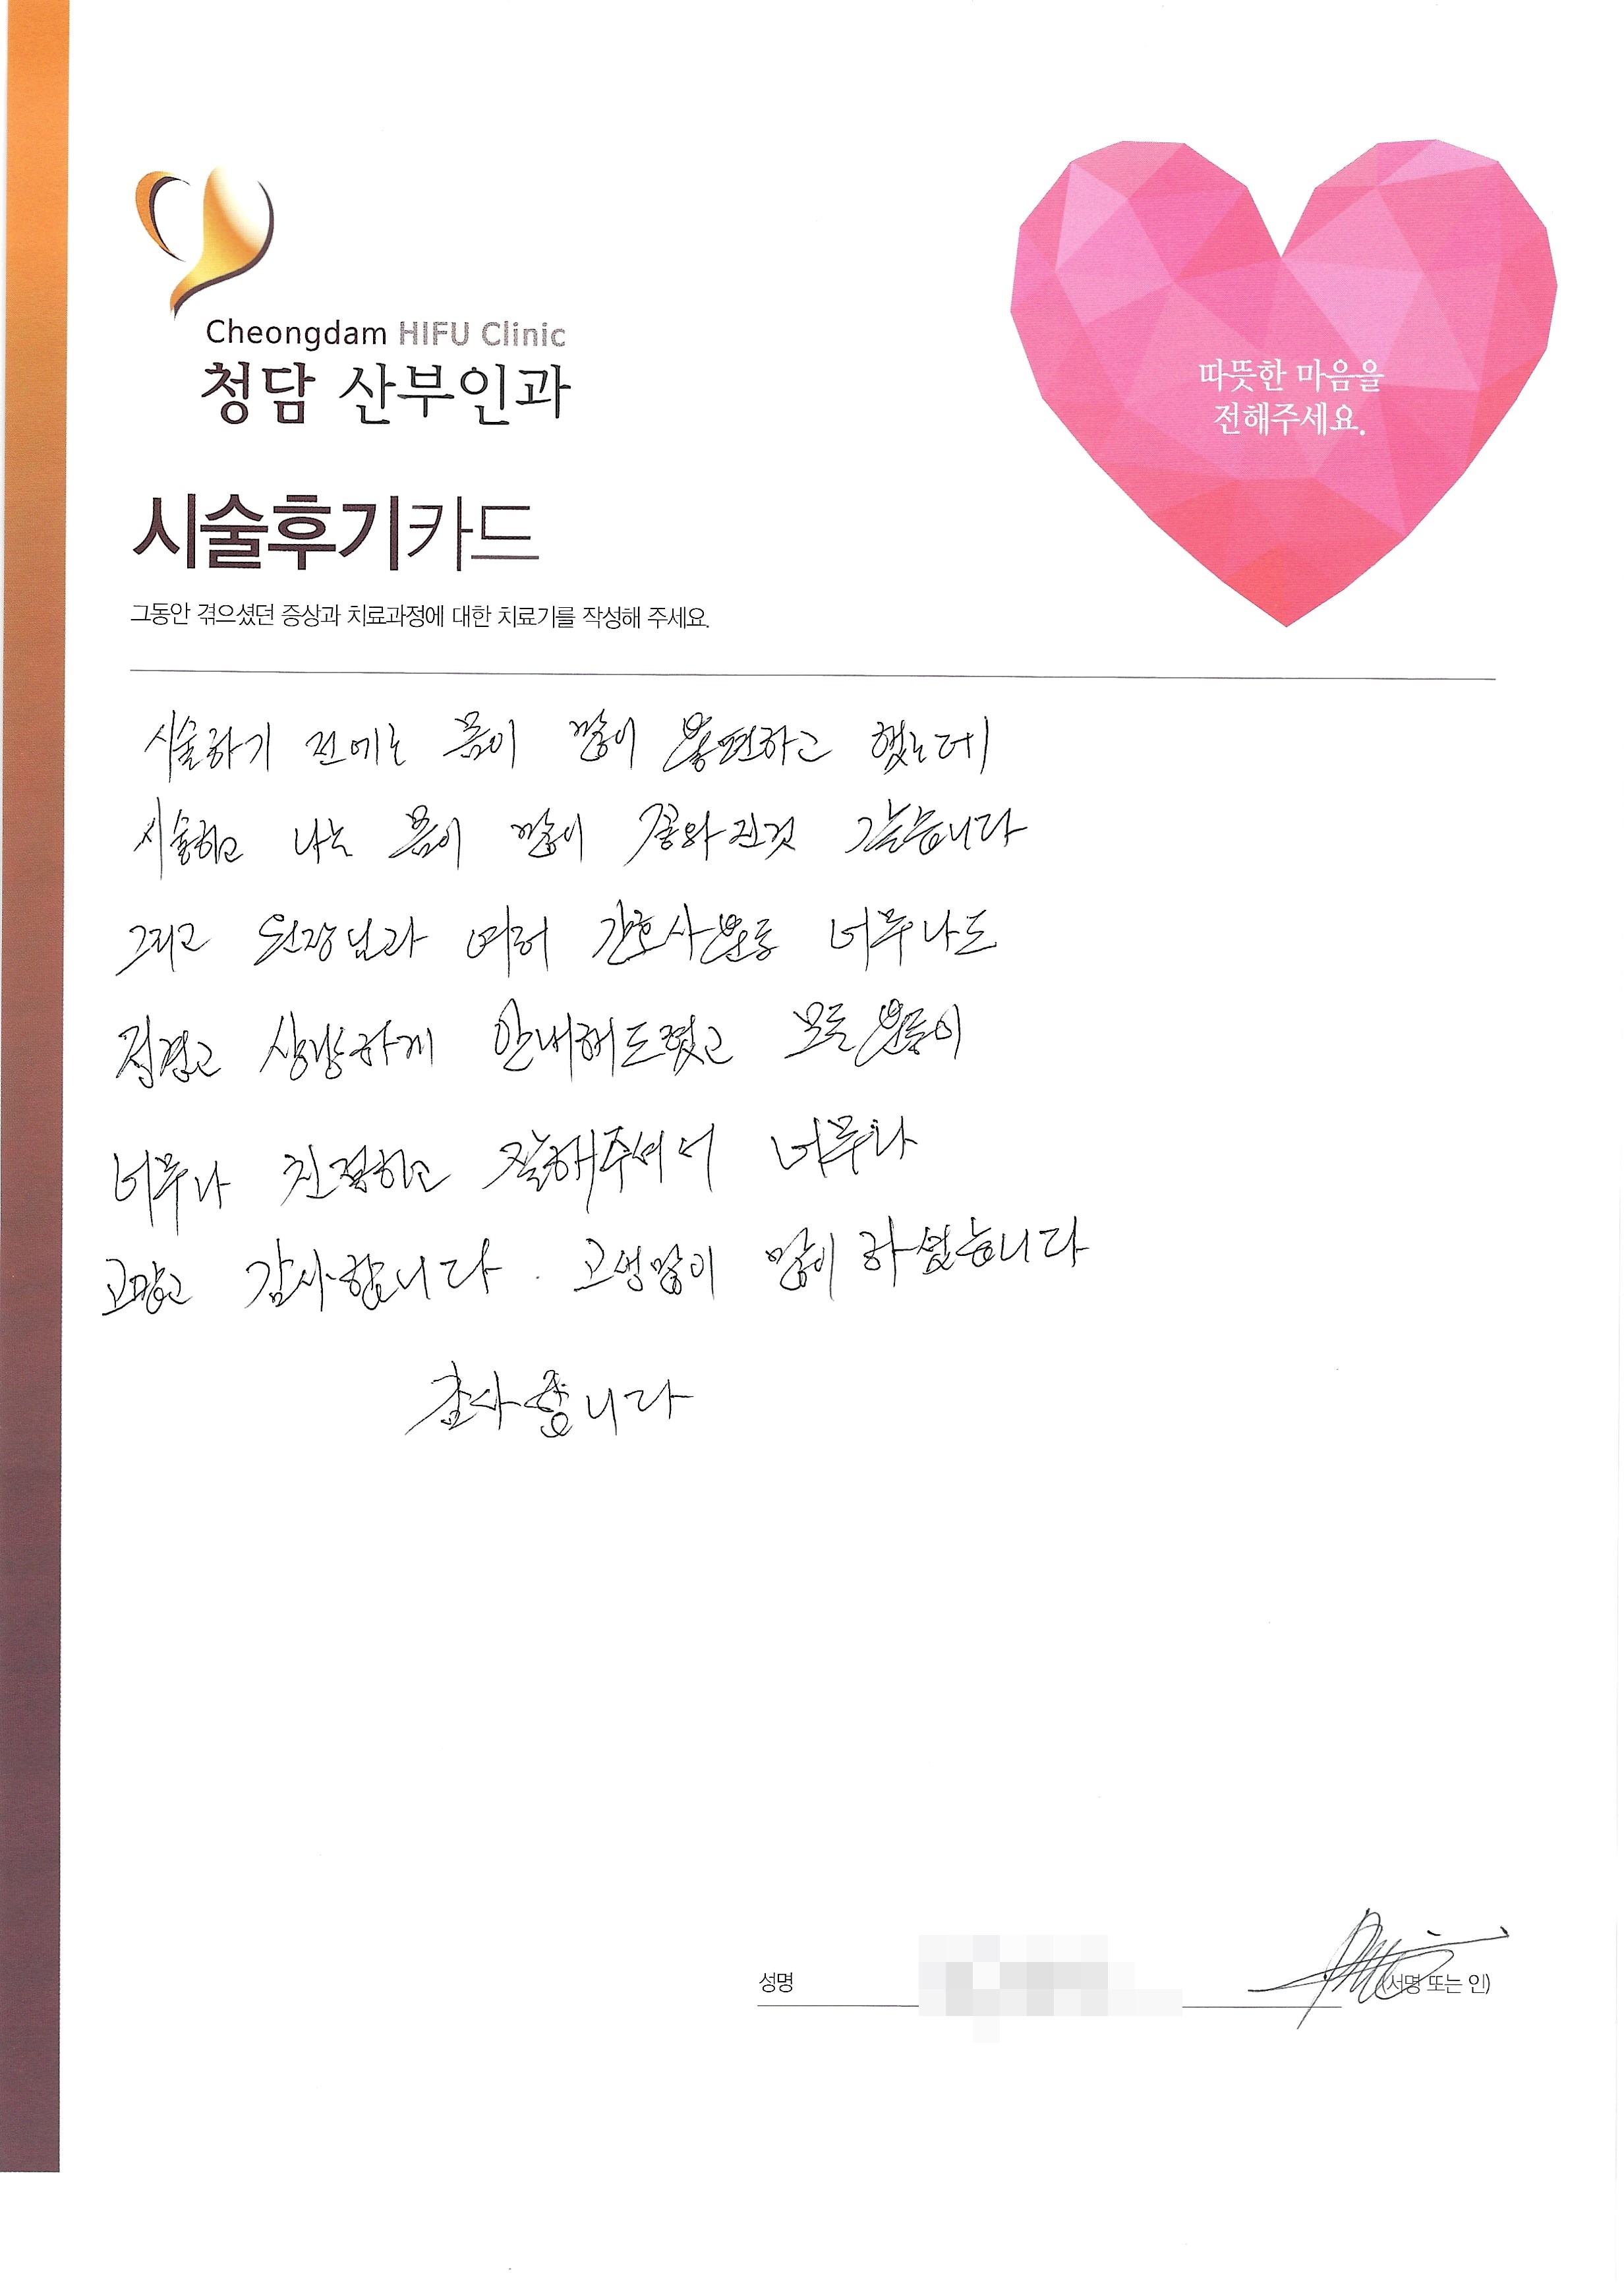 Cheongdam HIFU Clinic
청담 산부인과
따뜻한 마음을
전해주세요.
시술후기카드
그동안 겪으셨던 증상과 치료과정에 대한 치료기를 작성해 주세요.
시술하기 전에는 몸이 많이 불편하고 했는데
시술하고 나는 몸이 많이 좋와진것 같습니다
그리고 원장님과 여러 간호사분들 너무나도
상냥하게 안내해드렸고 모든 분들이
너무나 친절하고 잘해주셔서 너무나
고맙고 감사합니다. 고생많이 많이 하셨습니다
감사합니다
성명
(서명 또는 인)